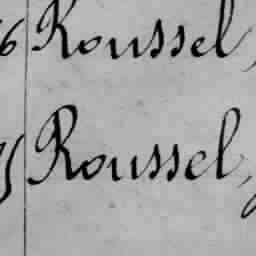 6 Roussel,
5 Roussel,